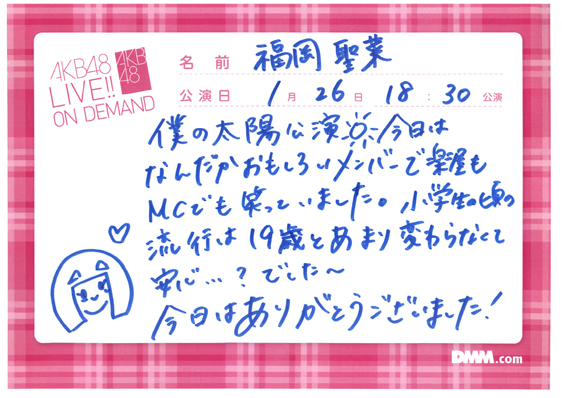 AKB48
LIVE!!
ON DEMAND
AKB
48
名前 福岡 聖菜
公演日 1月26日 18:30公演
僕の太陽公演 今日は
なんだかおもしろいメンバーで楽屋も
MCでも笑っていました。小学生の頃の
流行は19歳とあまり変わらなくて
安心…?でした〜
今日はありがとうございました!
DMM.com